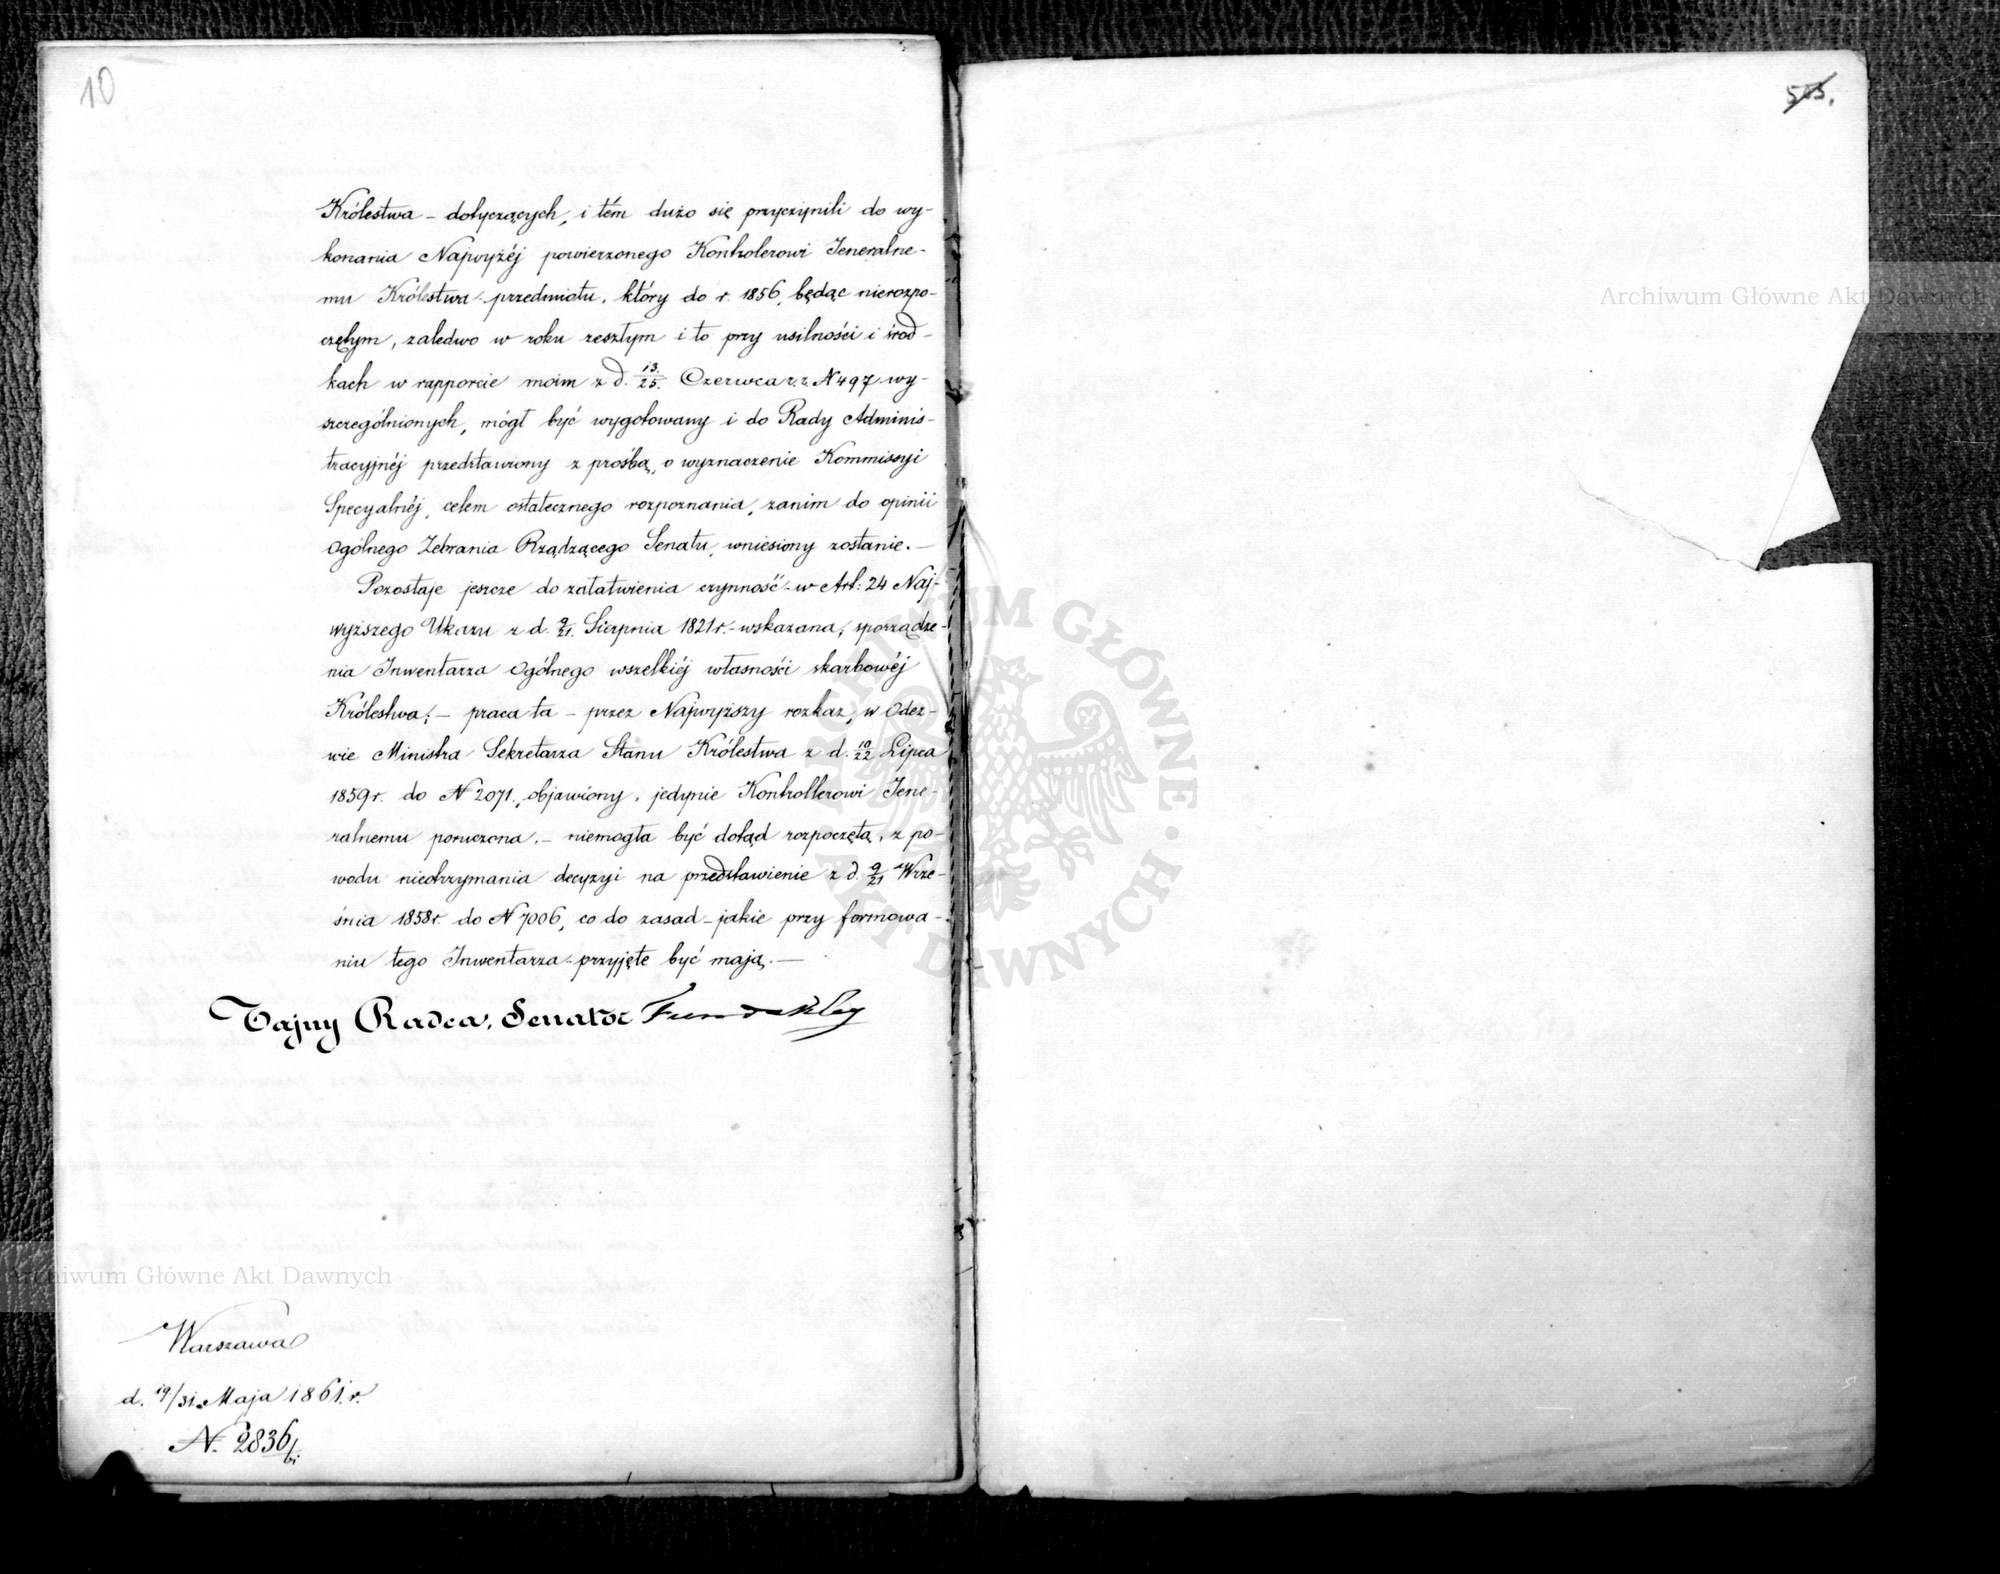 10
Królestwa – dotyczących, i tém dużo się przyczynili do wy-
konania Najwyżéj powierzonego Kontrolerowi Jeneralne-
mu Królestwa przedmiotu, który do r. 1856, będąc nierozpo-
czętym, zaledwo w roku zeszłym i to przy usilności i środ-
kach w rapporcie moim z d. 13/25. Czerwca r. z. N 497 wy-
szczególnionych, mógł być wygotowany i do Rady Adminis-
tracyjnéj przedstawiony z prośbą, o wyznaczenie Kommissyi
Specyalnéj, celem ostatecznego rozpoznania, zanim do opinii
Ogólnego Zebrania Rządzącego Senatu, wniesiony zostanie. –
Pozostaje jeszcze do załatwienia czynność w Art: 24 Naj-
wyższego Ukazu z d. 9/21. Sierpnia 1821 r. – wskazana, sporządze-
nia Inwentarza Ogólnego wszelkiéj własności skarbowéj
Królestwa; – praca ta – przez Najwyższy rozkaz, w Odez-
wie Ministra Sekretarza Stanu Królestwa z d. 10/22 Lipca
1859 r. do N 2071., objawiony, jedynie Kontrollerowi Jene-
ralnemu poruczona, – niemogła być dotąd rozpoczętą, z po-
wodu nieotrzymania decyzyi na przedstawienie z d. 9/21 Wrze-
śnia 1858 r. do N 7006, co do zasad – jakie przy formowa-
niu tego Inwentarza przyjęte być mają. –
Tajny Radca, Senator Fundukley
Warszawa
d. 19/31. Maja 1861. r.
N. 2836
505.
Archiwum Główne Akt Dawnych
Archiwum Główne Akt Dawnych
ARCHIWUM GŁÓWNE · AKT DAWNYCH ·